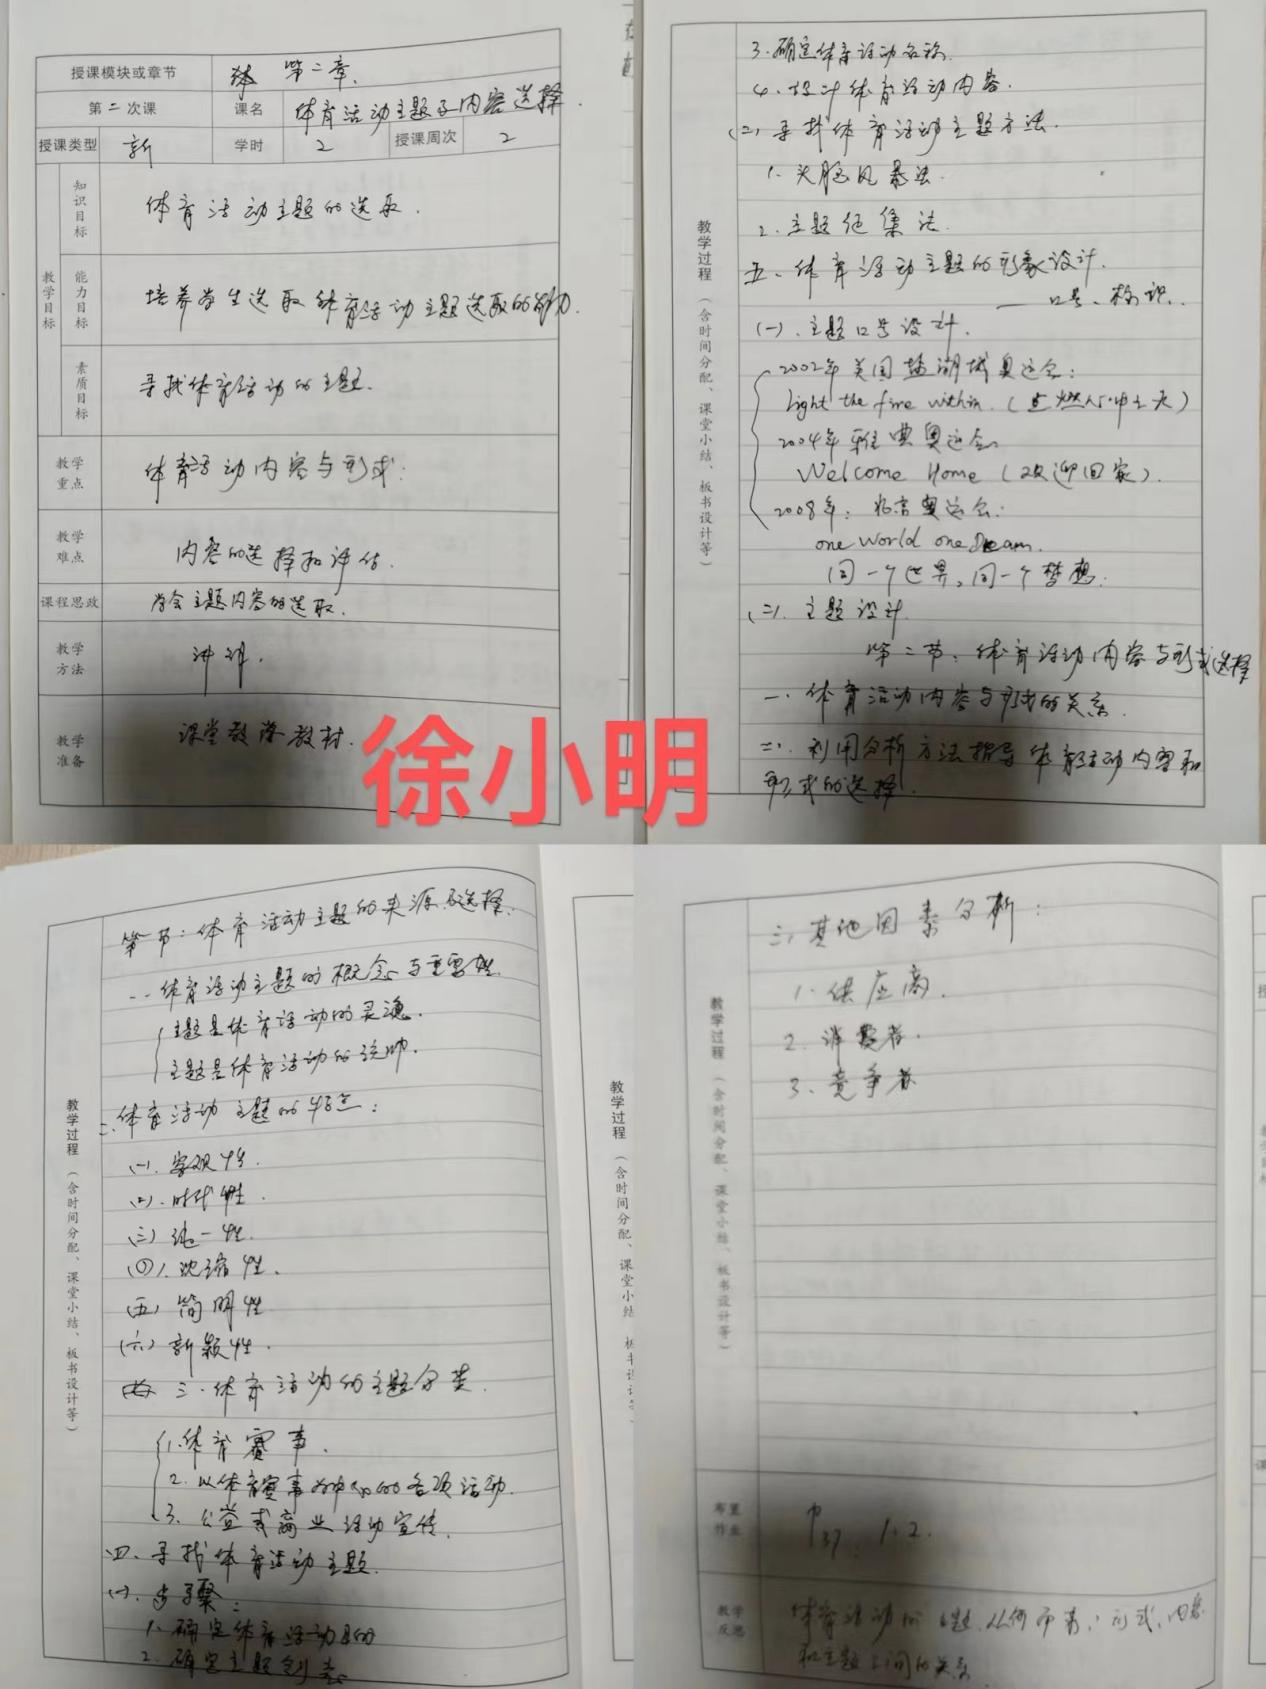 授课模块或章节 第二章.
第二次课 课名 体育活动主题及内容选择.
授课类型 新 学时 2 授课周次 2
教学目标
知识目标 体育活动主题的选取.
能力目标 培养学生选取体育活动主题选取的能力.
素质目标 寻找体育活动的主题.
教学重点 体育活动内容与形式.
教学难点 内容的选择和评估.
课程思政 学会主题内容的选取.
教学方法 讲训.
教学准备 课堂教学教材.
徐小明
教学过程(含时间分配、课堂小结、板书设计等)
3.确定体育活动名称.
4.设计体育活动内容.
(二)寻找体育活动主题方法.
1.头脑风暴法.
2.主题 集法.
五、体育活动主题的形象设计.
——口号、标识.
(一).主题口号设计.
2002年美国盐湖城奥运会:
light the fire within.(点燃心中之火)
2004年雅典奥运会
Welcome Home(欢迎回家).
2008年:北京奥运会:
one World one Dream.
同一个世界,同一个梦想.
(二).主题设计.
第二节:体育活动内容与形式选择
一.体育活动内容与形式的关系.
二.利用分析方法指导体育活动内容和
形式的选择.
教学过程(含时间分配、课堂小结、板书设计等)
第一节:体育活动主题的来源与选择.
一.体育活动主题的概念与重要性.
主题是体育活动的灵魂.
主题是体育活动的统帅.
二.体育活动主题的特点:
(一).客观性.
(二).时代性.
(三)统一性.
(四).浓缩性.
(五)简明性
(六)新颖性.
三.体育活动的主题分类.
1.体育赛事.
2.以体育赛事为中心的各项活动.
3.公益或商业活动宣传.
四.寻找体育活动主题.
(一).步骤:
1.确定体育活动目的
2.确定主题
教学过程(含时间分配、课堂小结
教学过程(含时间分配、课堂小结、板书设计等)
三、其他因素分析:
1.供应商.
2.消费者.
3.竞争者
布置作业 P37 1.2.
教学反思 体育活动的主题从何而来,形式、内容
和主题之间的关系